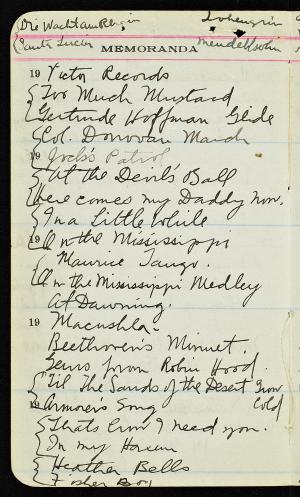 Die Wacht am Rhein Lohengrin
Santa Lucia Mendelssohn
MEMORANDA
19 Victor Records
Too Much Mustard
Gertrude Hoffman Glide
Col. Donovan March
19 Jock's Patrol
At the Devil's Ball
Here comes my Daddy now.
In a Little While
19 On the Mississippi
Maurice Tango.
On the Mississippi Medley
At Dawning.
19 Macushla.
Beethoven's Minuet.
Gems from Robin Hood.
'Til The Sands of the Desert Grow
Cold
19 Armorer's Song
Thats how I need you.
In my Harem
Heather Bells
Fisher Boy